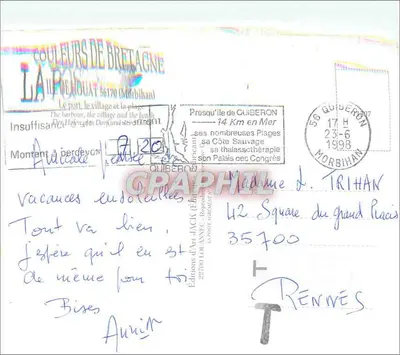 COULEURS DE BRETAGNE
LA 56170 (Morbihan)
Le port, le village et la plage
The harbour, the village and the beach
Insuffisance
Montant à percevoir 7,20
Presqu'île de QUIBERON
14 Km en Mer
ses nombreuses Plages
sa Côte Sauvage
sa thalassothérapie
son Palais des Congrès
QUIBERON
56 QUIBERON
17 H
23-6
1998
MORBIHAN
GRAPHIL
Amicale pensée de
vacances ensoleillées
Tout va bien,
j'espère qu'il en est
de même pour toi
Bises
Annick
Editions d'Art JACK
22700 LOUANNEC
Madame L. TRIHAN
42 Square du grand Placis
35700
RENNES
T
T